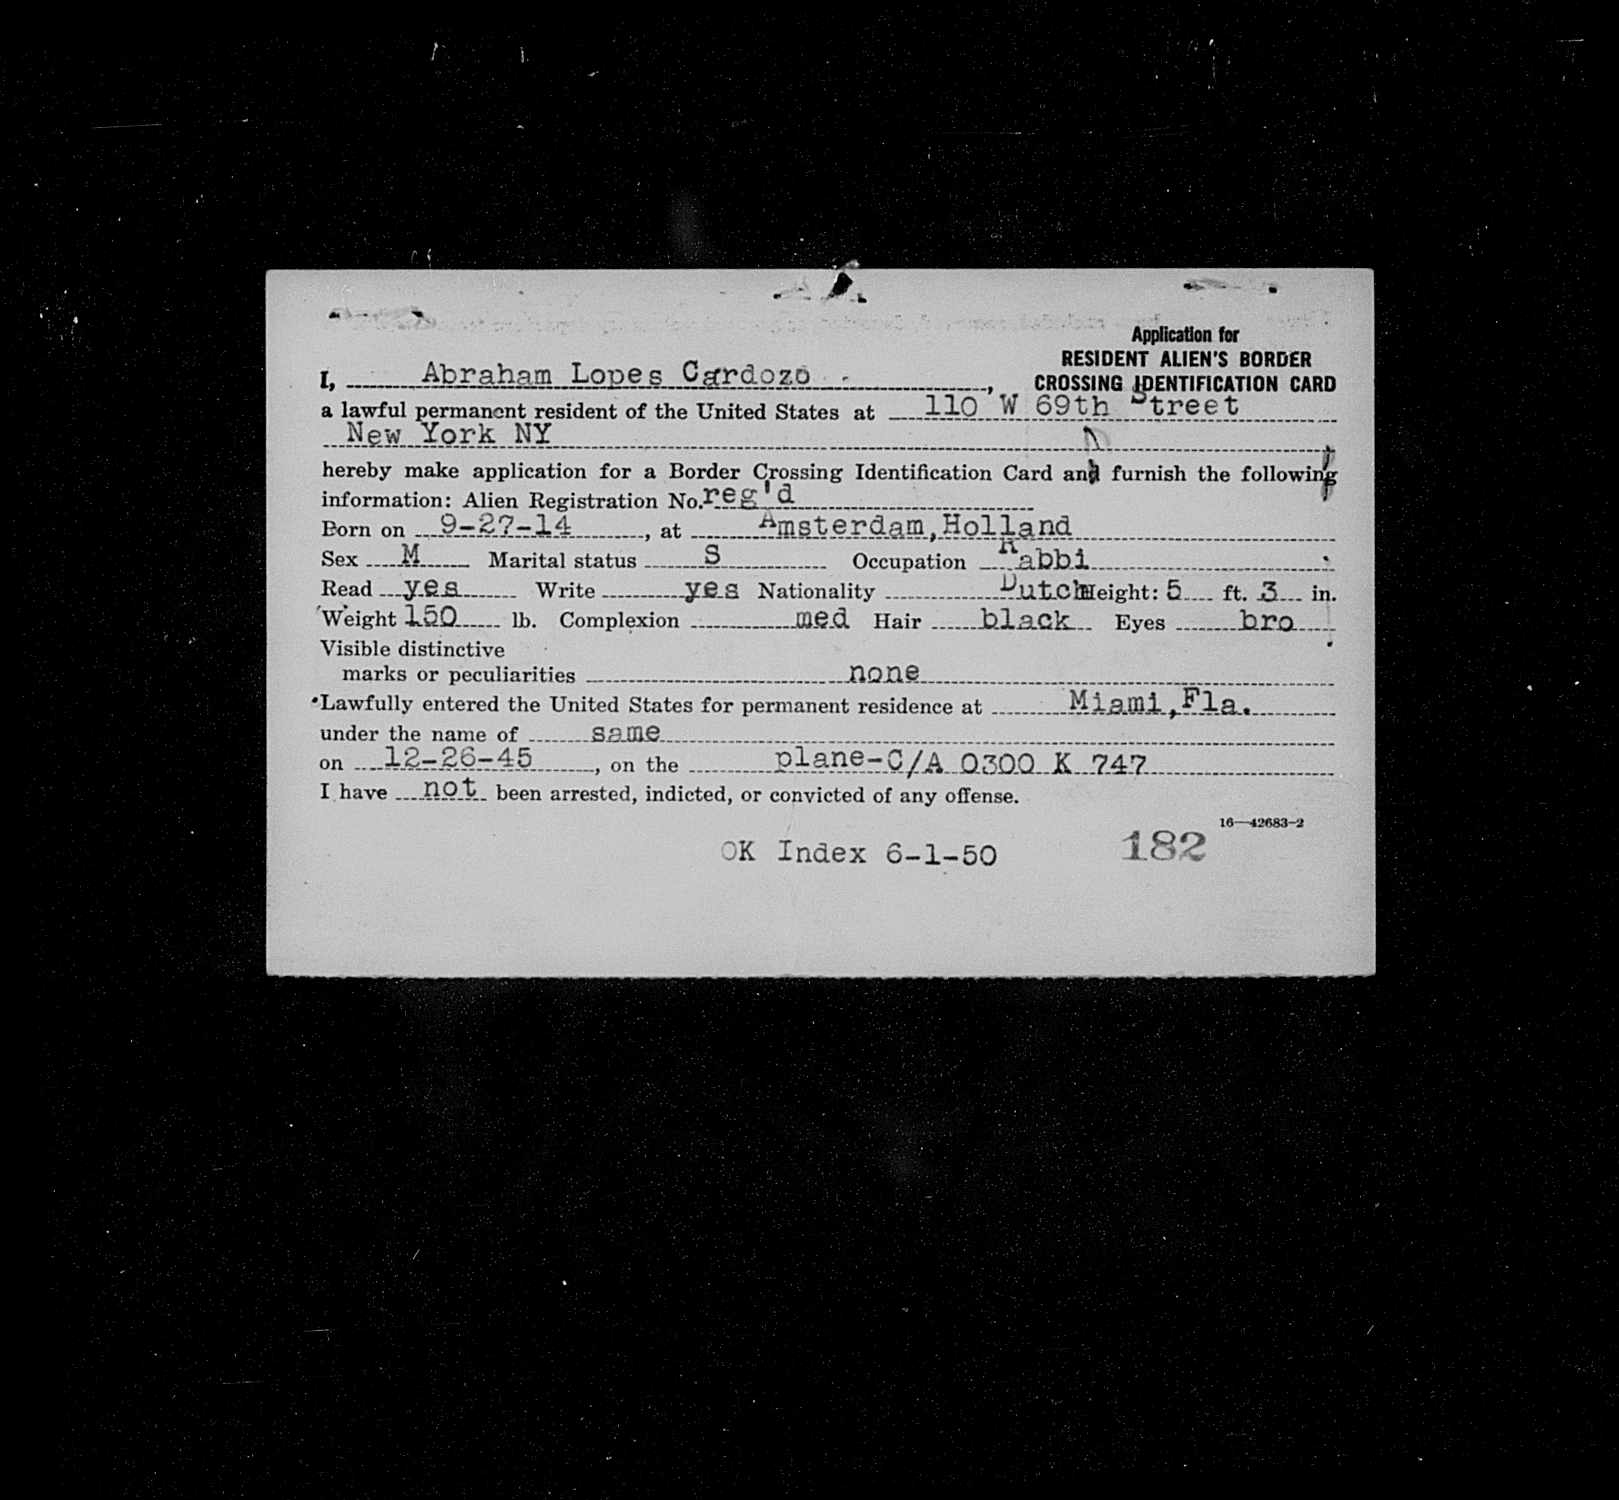 Application for
RESIDENT ALIEN'S BORDER
CROSSING IDENTIFICATION CARD
I, Abraham Lopes Cardozo,
a lawful permanent resident of the United States at 110 W 69th Street
New York NY
hereby make application for a Border Crossing Identification Card and furnish the following
information: Alien Registration No. reg'd
Born on 9-27-14, at Amsterdam, Holland
Sex M Marital status S Occupation Rabbi
Read yes Write yes Nationality Dutch Height: 5 ft. 3 in.
Weight 150 lb. Complexion med Hair black Eyes bro
Visible distinctive
marks or peculiarities none
Lawfully entered the United States for permanent residence at Miami, Fla.
under the name of same
on 12-26-45, on the plane-C/A 0300 K 747
I have not been arrested, indicted, or convicted of any offense.
16—42683-2
OK Index 6-1-50 182